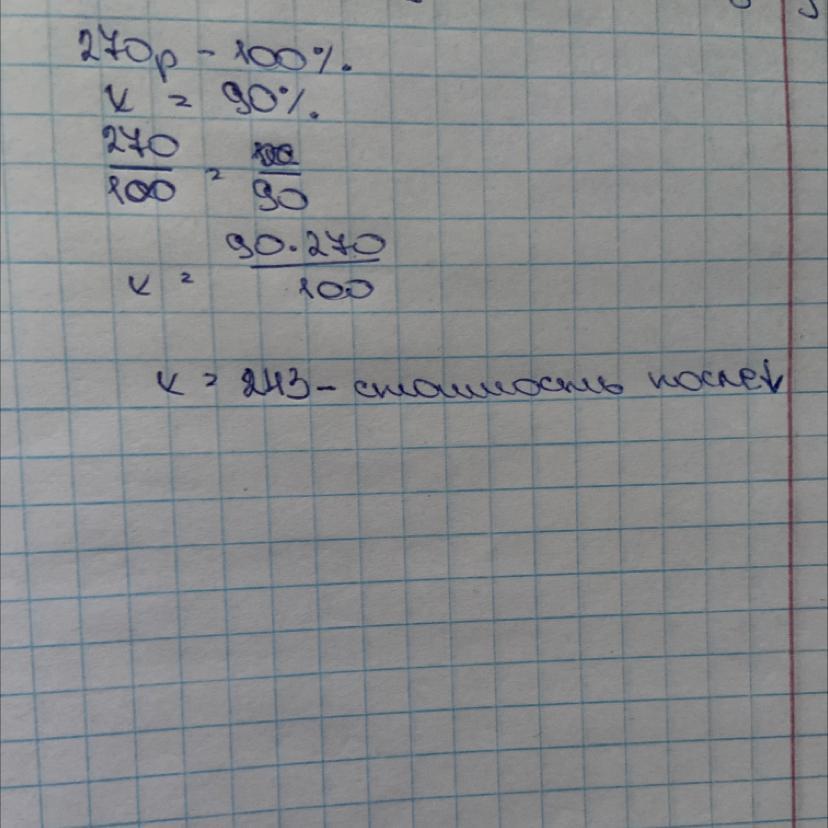 270р - 100%.
x = 90%.
270/100 = /90
x = 90·270/100
x = 243 - стоимость после ↓